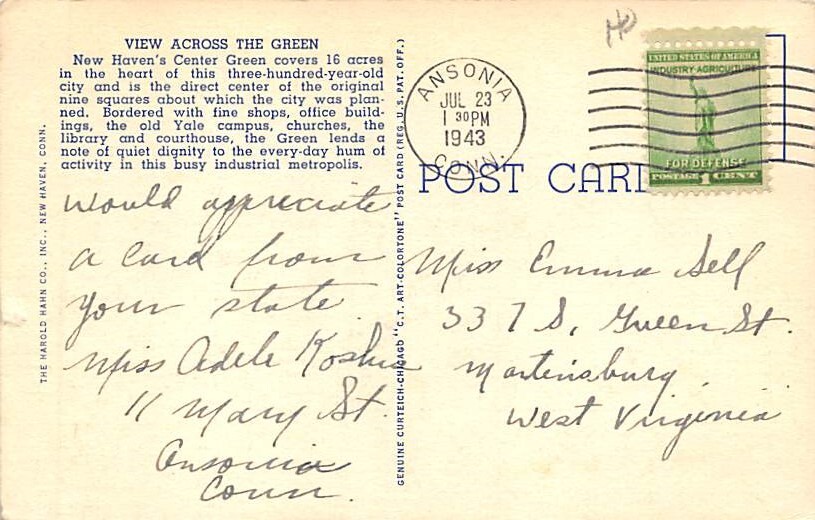 VIEW ACROSS THE GREEN
New Haven's Center Green covers 16 acres
in the heart of this three-hundred-year-old
city and is the direct center of the original
nine squares about which the city was plan-
ned. Bordered with fine shops, office build-
ings, the old Yale campus, churches, the
library and courthouse, the Green lends a
note of quiet dignity to the every-day hum of
activity in this busy industrial metropolis.
THE HAROLD HAHN CO., INC., NEW HAVEN, CONN.
would appreciate
a card from
your state.
Miss Adele
11 Mary St.
Ansonia
Conn.
GENUINE CURTEICH-CHICAGO "C.T. ART-COLORTONE" POST CARD (REG. U.S. PAT. OFF.)
ANSONIA
JUL 23
1 30 PM
1943
CONN.
UNITED STATES OF AMERICA
INDUSTRY-AGRICULTURE
FOR DEFENSE
POSTAGE 1 CENT
POST CARD
Miss Emma Sell
337 S. Green St.
Martinsburg,
West Virginia